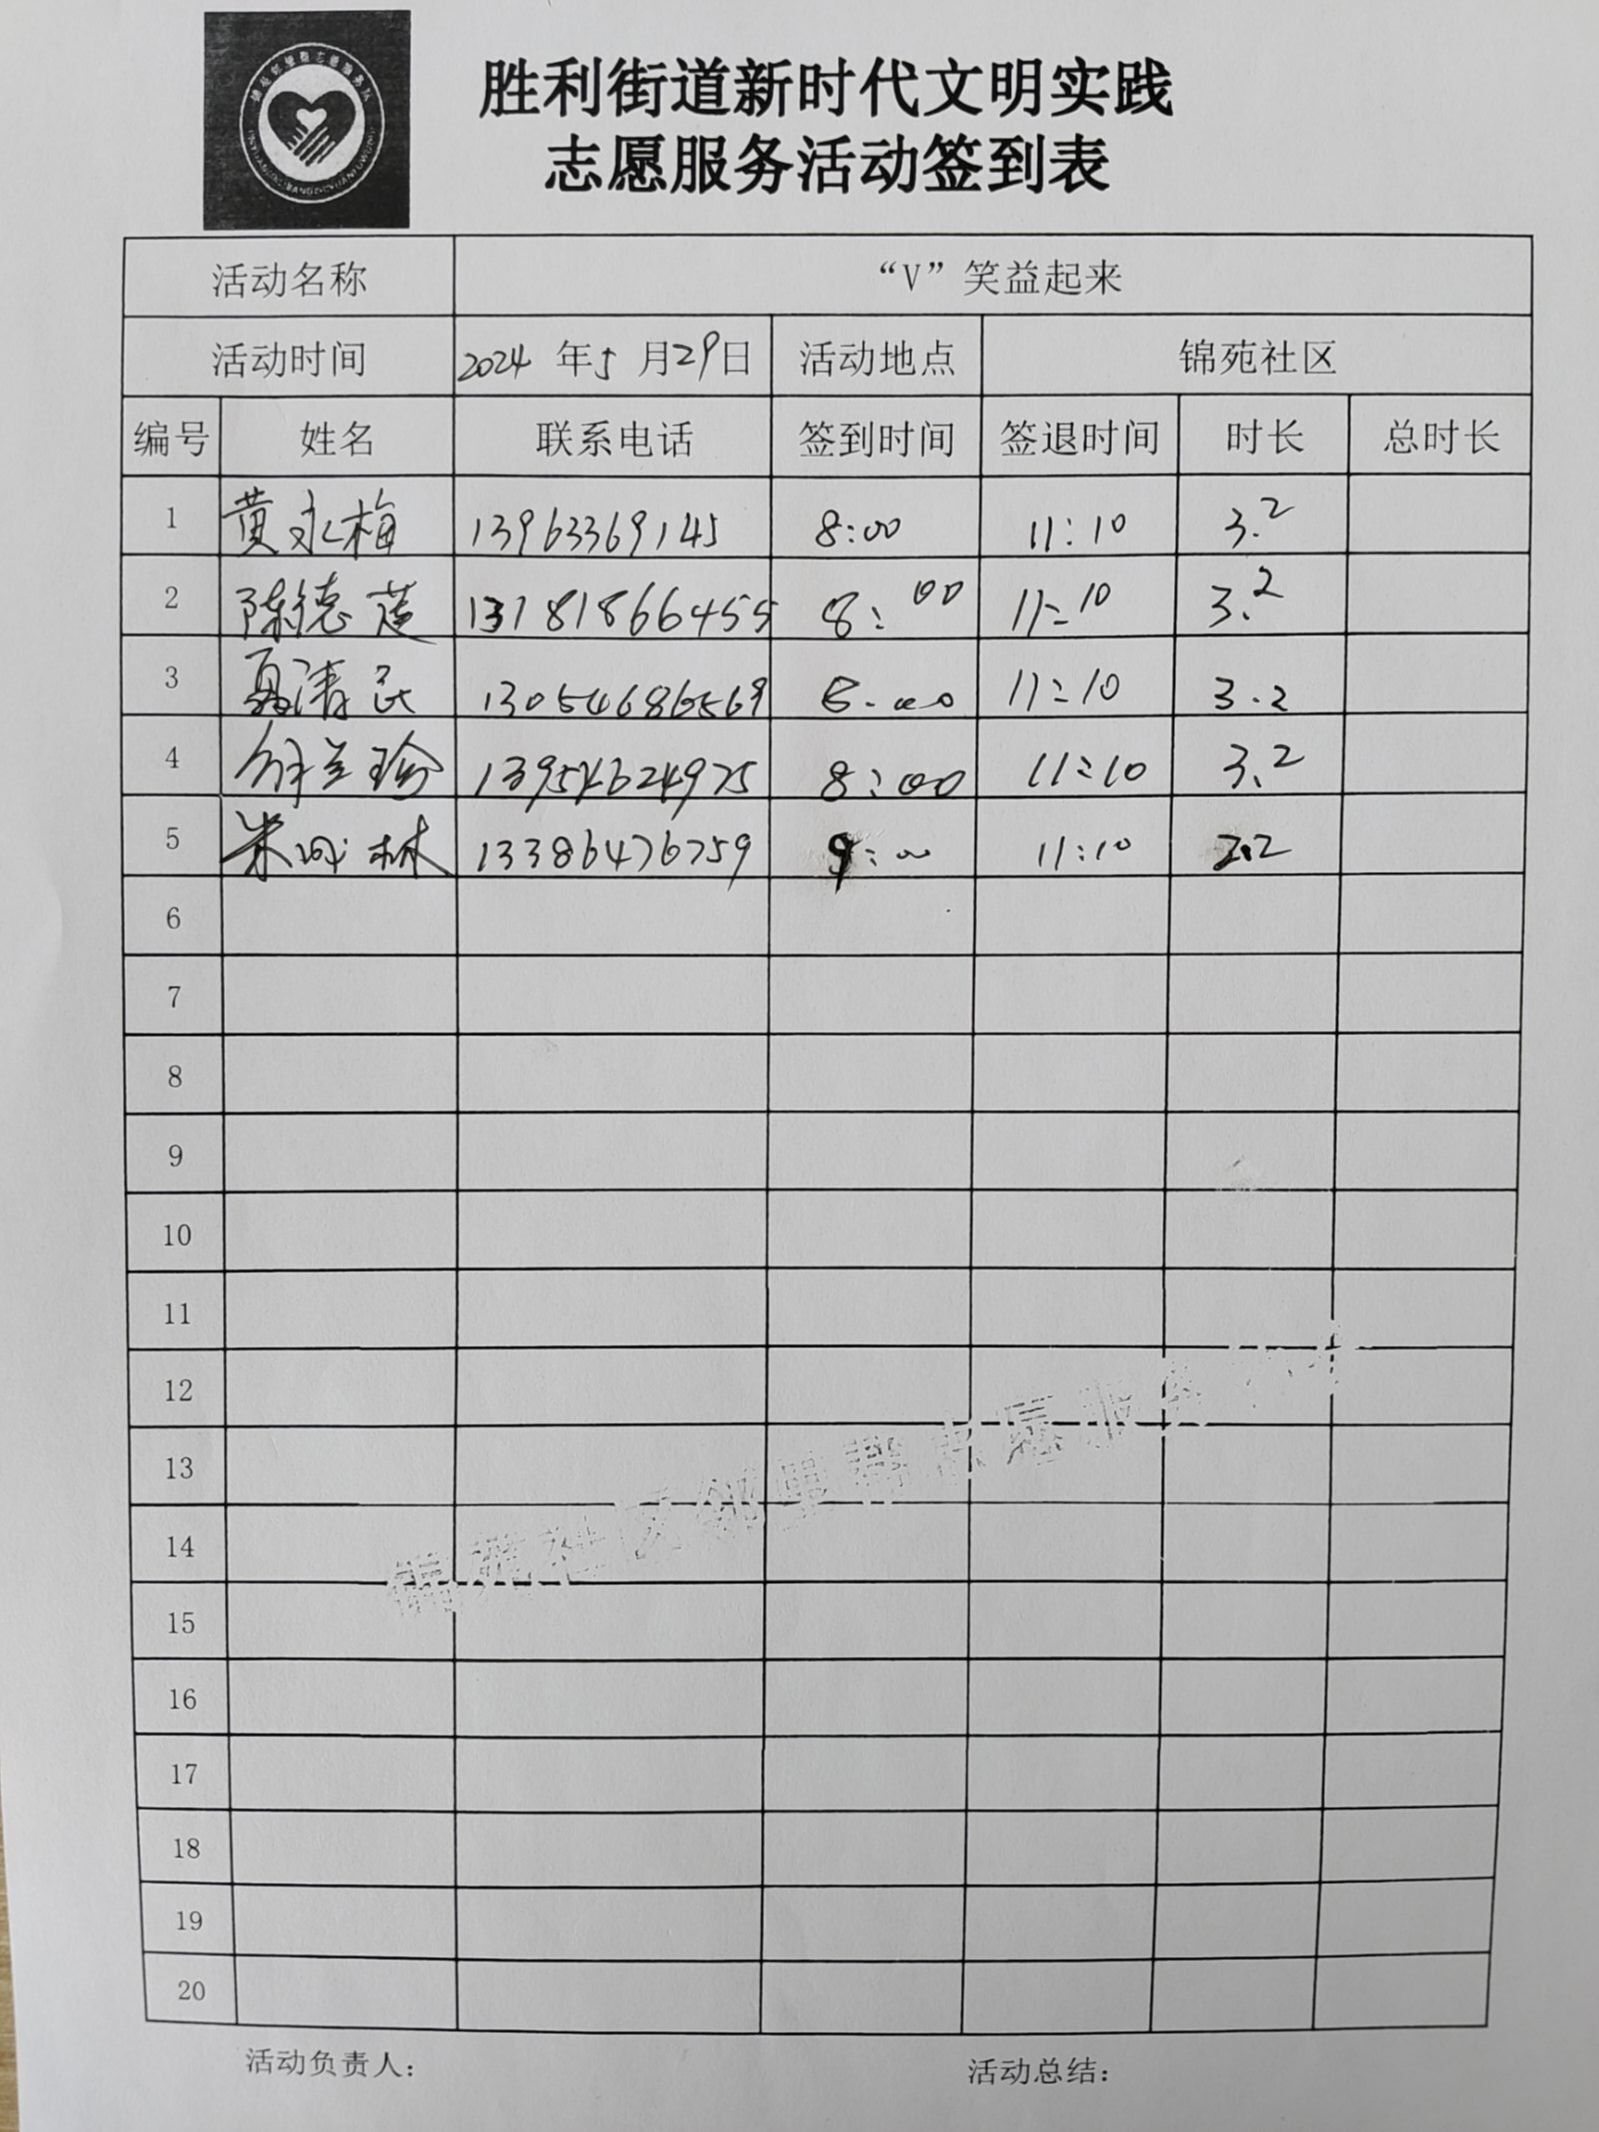 胜利街道新时代文明实践
志愿服务活动签到表
活动名称 “V”笑益起来
活动时间 2024 年5 月29日 活动地点 锦苑社区
编号 姓名 联系电话 签到时间 签退时间 时长 总时长
1 黄永梅 13963369145 8:00 11:10 3.2
2 陈德莲 13181866455 8:00 11:10 3.2
3 聂清民 13054686569 8:00 11:10 3.2
4 兰珍 13954624975 8:00 11:10 3.2
5 林 13386476759 9:00 11:10 2.2
6
7
8
9
10
11
12
13
14
15
16
17
18
19
20
锦苑社区邻里帮志愿服务
活动负责人: 活动总结: